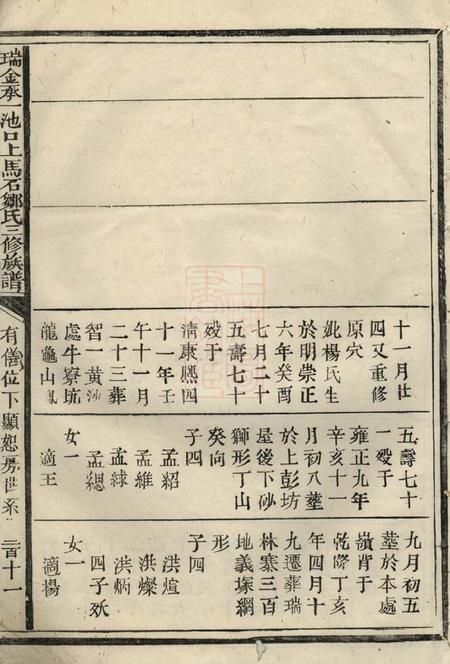 十一月廿
四又重修
原穴
妣楊氏生
於明崇正
六年癸酉
七月二十
五壽七十
歿于
清康熙四
十一年壬
午十一月
二十三葬
智一黃沙
處牛寮坑
龍龜山
五壽七十
一歿于
雍正九年
辛亥十一
月初八塟
於上彭坊
屋後下砂
獅形丁山
癸向
子四
孟紹
孟維
孟綠
孟總
女一
適王
九月初五
塟於本處
嶺背于
乾隆丁亥
年四月十
九遷葬瑞
林寨三百
地義塚網
形
子四
洪煊
洪燦
洪炳
四子殀
女一
適楊
瑞金承一池口上馬石鄒氏三修族譜
有儀位下顯恕房世系
三百十一